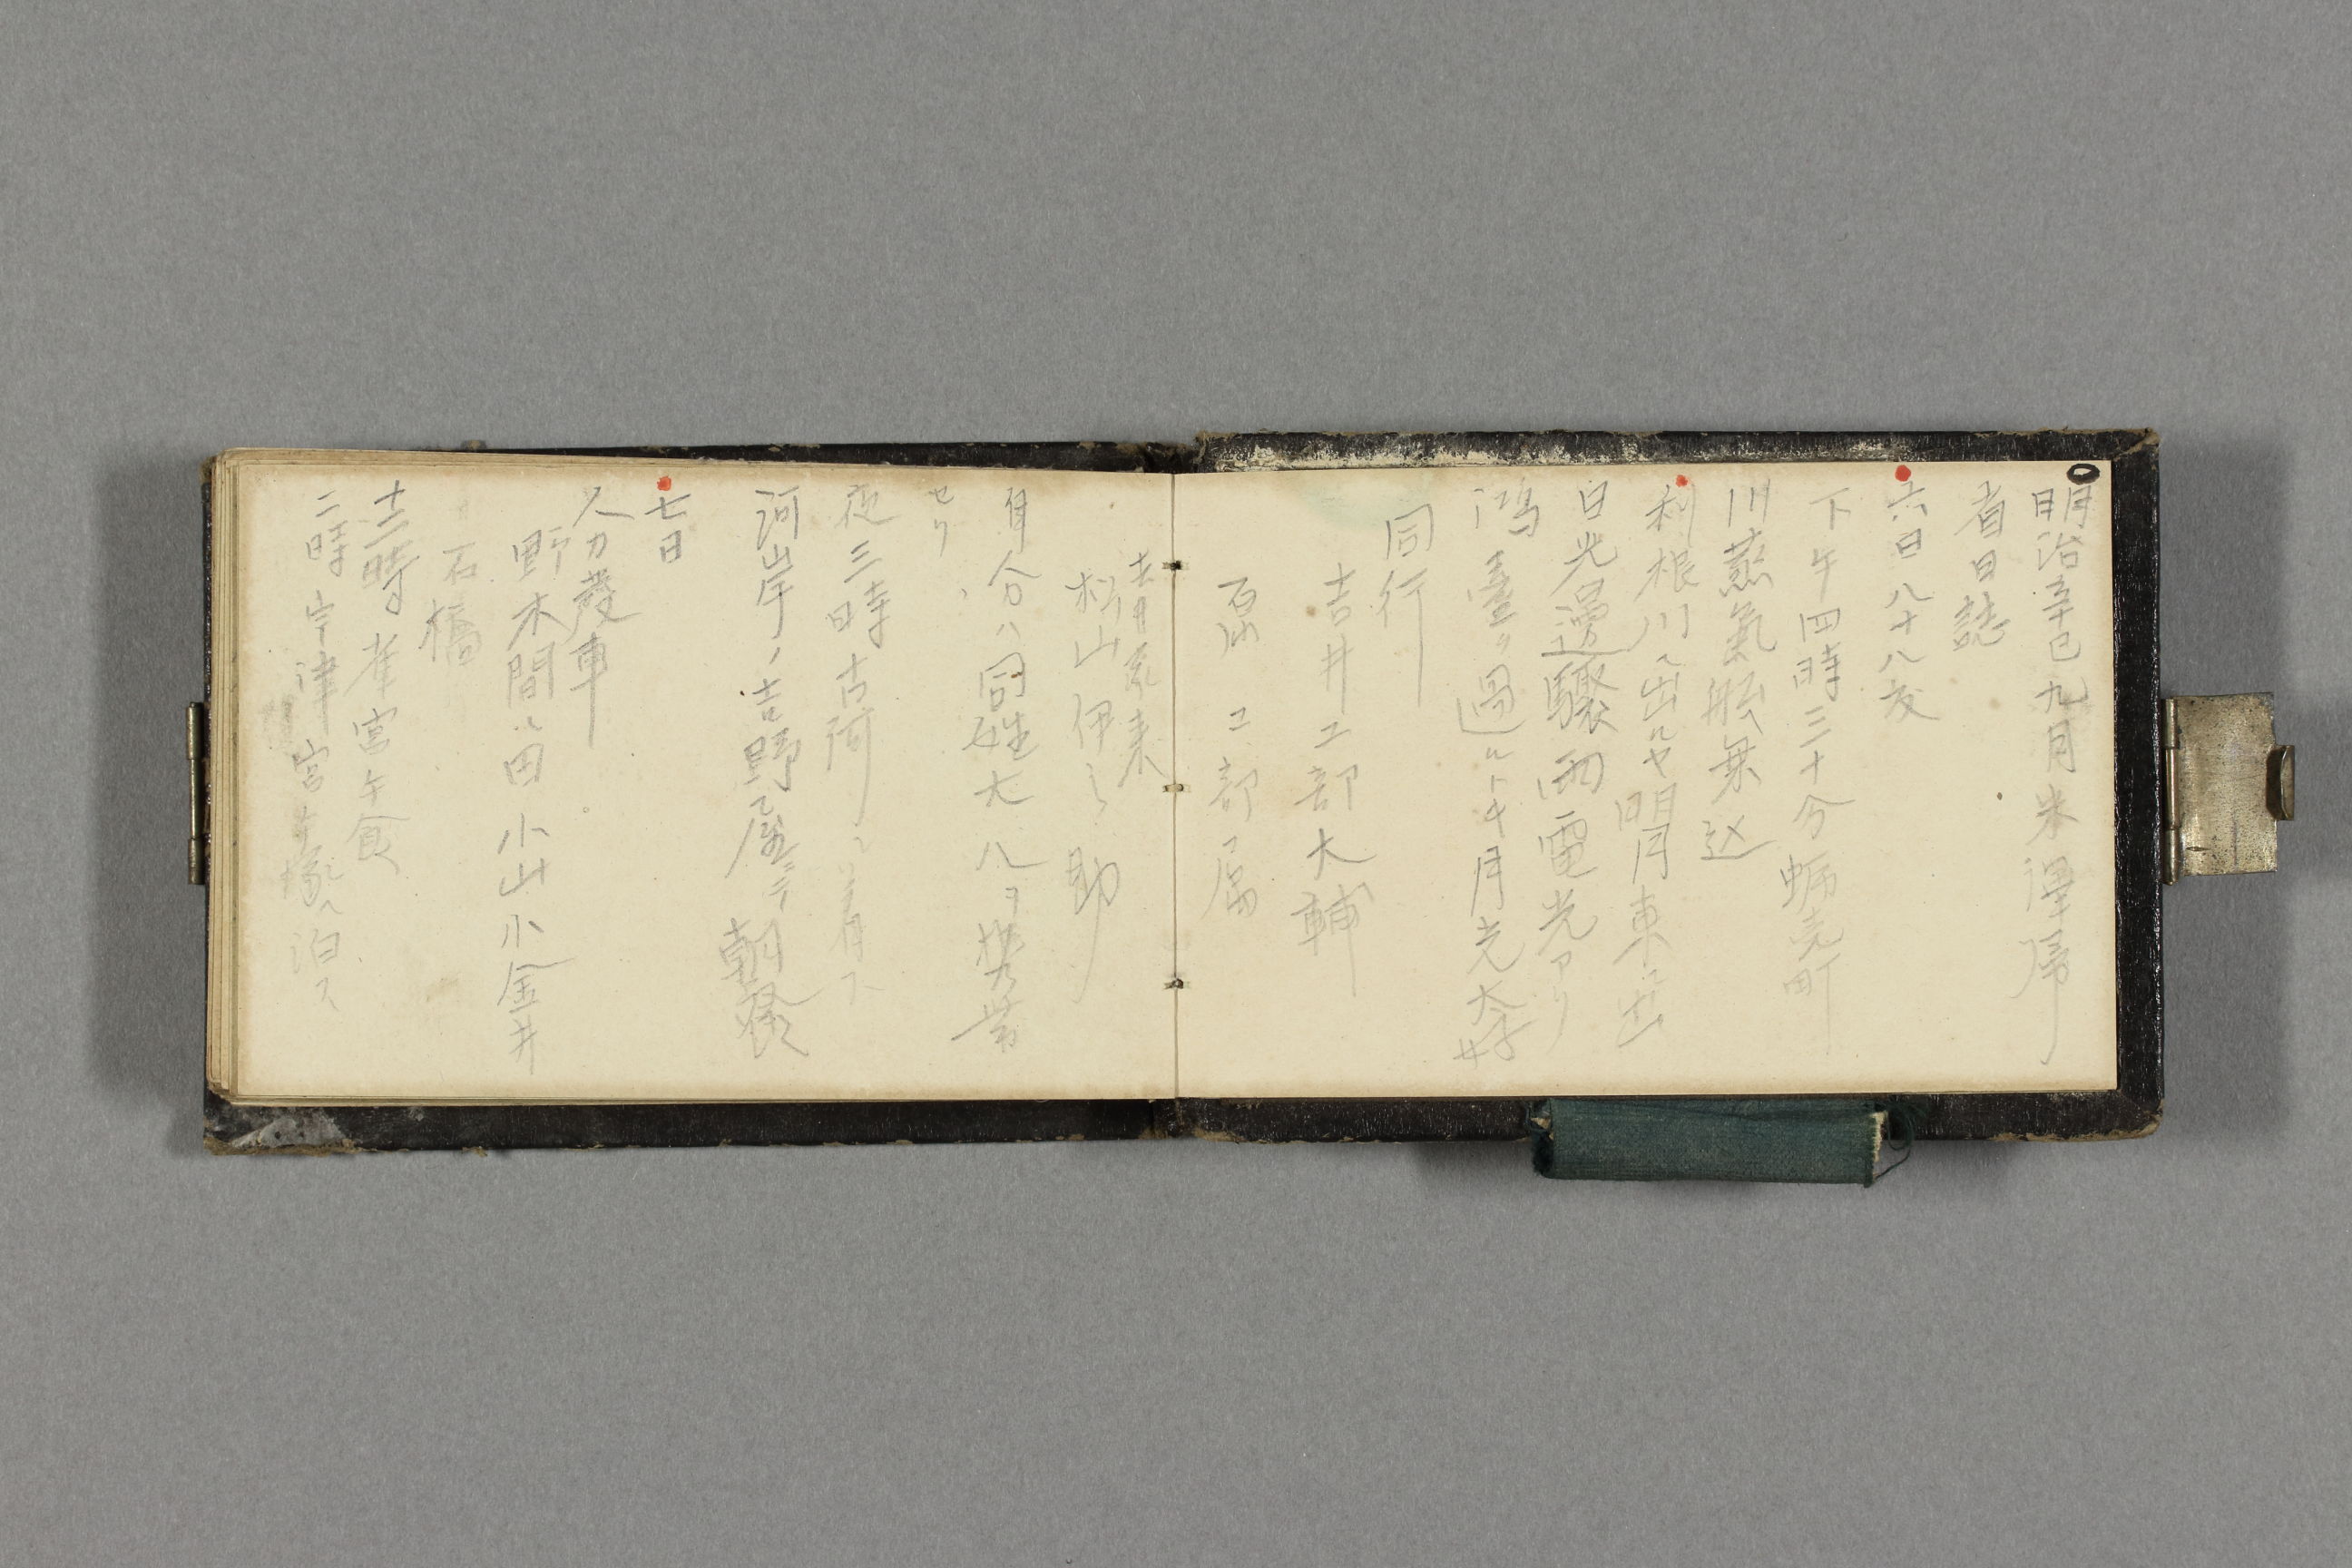 明治辛巳九月米澤帰
省日誌
六日八十八度
下午四時三十分蛎売町
川蒸氣舩乗込
利根川ヘ出ルヤ明月東ニ出
日光邊驟雨電光アリ
鴻臺ヲ過ルトキ月光大好
同行
吉井工部大輔
工部属
吉井家来
松山伊之助
自分ハ同姓大八ヲ携帯
セリ
夜三時古河ニ着ス
河岸ノ吉野屋ニテ朝餐
七日
人力發車
野木間々田小山小金井
石橋
十二時雀宮午食
二時宇津宮手塚ヘ泊ス